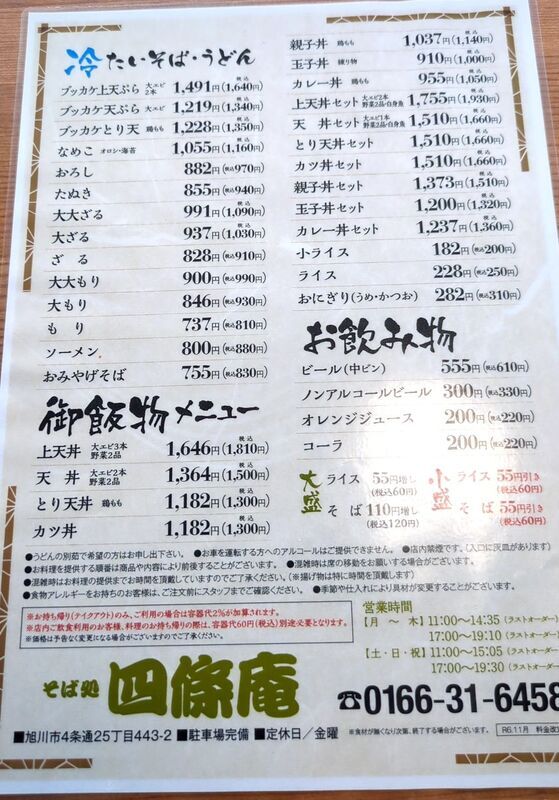 冷たいそば・うどん
ブッカケ上天ぷら 大エビ2本 1,491円(税込1,640円)
ブッカケ天ぷら 大エビ1本 1,219円(税込1,340円)
ブッカケとり天 鶏もも 1,228円(税込1,350円)
なめこ オロシ・海苔 1,055円(税込1,160円)
おろし 882円(税込970円)
たぬき 855円(税込940円)
大大ざる 991円(税込1,090円)
大ざる 937円(税込1,030円)
ざる 828円(税込910円)
大大もり 900円(税込990円)
大もり 846円(税込930円)
もり 737円(税込810円)
ソーメン 800円(税込880円)
おみやげそば 755円(税込830円)
御飯物メニュー
上天丼 大エビ3本 野菜2品 1,646円(税込1,810円)
天丼 大エビ2本 野菜2品 1,364円(税込1,500円)
とり天丼 鶏もも 1,182円(税込1,300円)
カツ丼 1,182円(税込1,300円)
親子丼 鶏もも 1,037円(税込1,140円)
玉子丼 練り物 910円(税込1,000円)
カレー丼 鶏もも 955円(税込1,050円)
上天丼セット 大エビ2本 野菜2品・白身魚 1,755円(税込1,930円)
天丼セット 大エビ1本 野菜2品・白身魚 1,510円(税込1,660円)
とり天丼セット 1,510円(税込1,660円)
カツ丼セット 1,510円(税込1,660円)
親子丼セット 1,373円(税込1,510円)
玉子丼セット 1,200円(税込1,320円)
カレー丼セット 1,237円(税込1,360円)
小ライス 182円(税込200円)
ライス 228円(税込250円)
おにぎり(うめ・かつお) 282円(税込310円)
お飲み物
ビール(中ビン) 555円(税込610円)
ノンアルコールビール 300円(税込330円)
オレンジジュース 200円(税込220円)
コーラ 200円(税込220円)
大盛 ライス 55円増し(税込60円)
そば 110円増し(税込120円)
小盛 ライス 55円引き(税込60円)
そば 55円引き(税込60円)
●うどんの別茹で希望の方はお申し出下さい。 ●お車を運転する方へのアルコールはご提供できません。 ●店内禁煙です。(入口に灰皿があります)
●お料理を提供する順番は商品や内容により前後することがございます。 ●混雑時は席の移動をお願いする場合がございます。
●混雑時はお料理の提供までお時間を頂戴していますのでご了承ください。(※揚げ物は特に時間を頂戴します)
●食物アレルギーをお持ちのお客様は、ご注文前にスタッフまでご確認ください。 ●季節や仕入れにより具材が変更することがございます。
※お持ち帰り(テイクアウト)のみ、ご利用の場合は容器代2%が加算されます。
※店内ご飲食利用のお客様、料理のお持ち帰りの際は、容器代60円(税込)別途必要となります。
※価格は予告なく変更になる場合がございますのでご了承ください。
営業時間
【月~木】11:00~14:35(ラストオーダー
17:00~19:10(ラストオーダー
【土・日・祝】11:00~15:05(ラストオーダー
17:00~19:30(ラストオーダー
そば処 四條庵
☎0166-31-6458
■旭川市4条通25丁目443-2 ■駐車場完備 ■定休日/金曜
※食材が無くなり次第、終了する場合がございます。
R6.11月 料金改